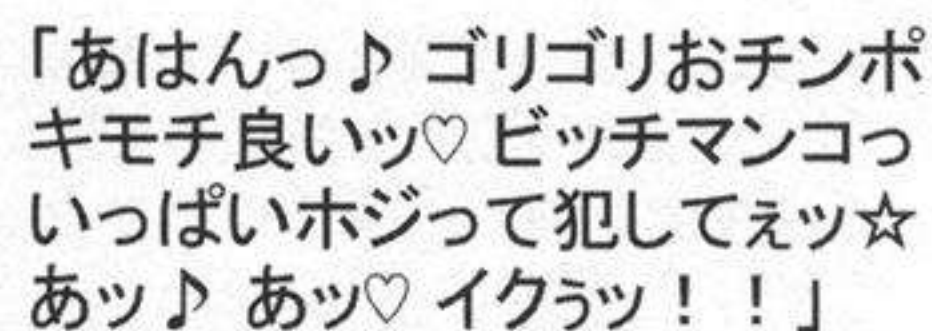 「あはんっ♪ ゴリゴリおチンポ
キモチ良いッ♡ ビッチマンコっ
いっぱいホジって犯してぇッ☆
あッ♪ あッ♡ イクぅッ！！」